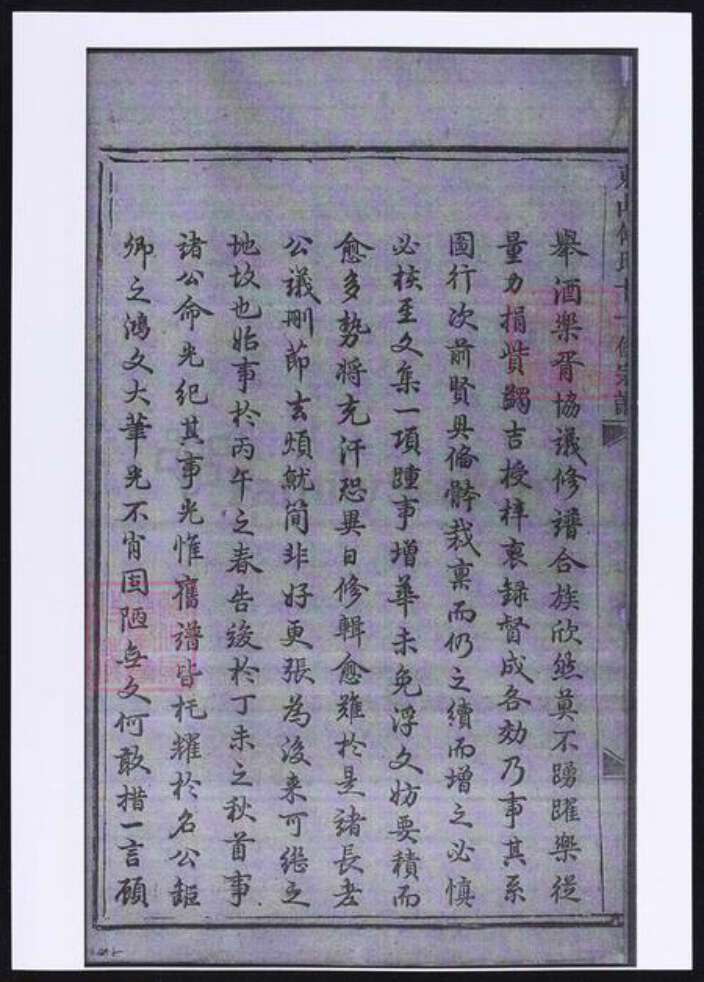 舉酒樂胥協議修譜合族欣然莫不踴躍樂從
量力捐貲蠲吉授梓裒録督成各効乃事其系
圖行次前賢具備體裁稟而仍之續而增之必慎
必核至文集一項踵事增華未免浮文妨要積而
愈多勢將充汗恐異日修輯愈難於是諸長老
公議刪節去煩就簡非好更張為後来可継之
地故也始事於丙午之春告竣於丁未之秋首事
諸公命光紀其事光惟舊譜皆托耀於名公鉅
卿之鴻文大筆光不肖固陋無文何敢措一言顧